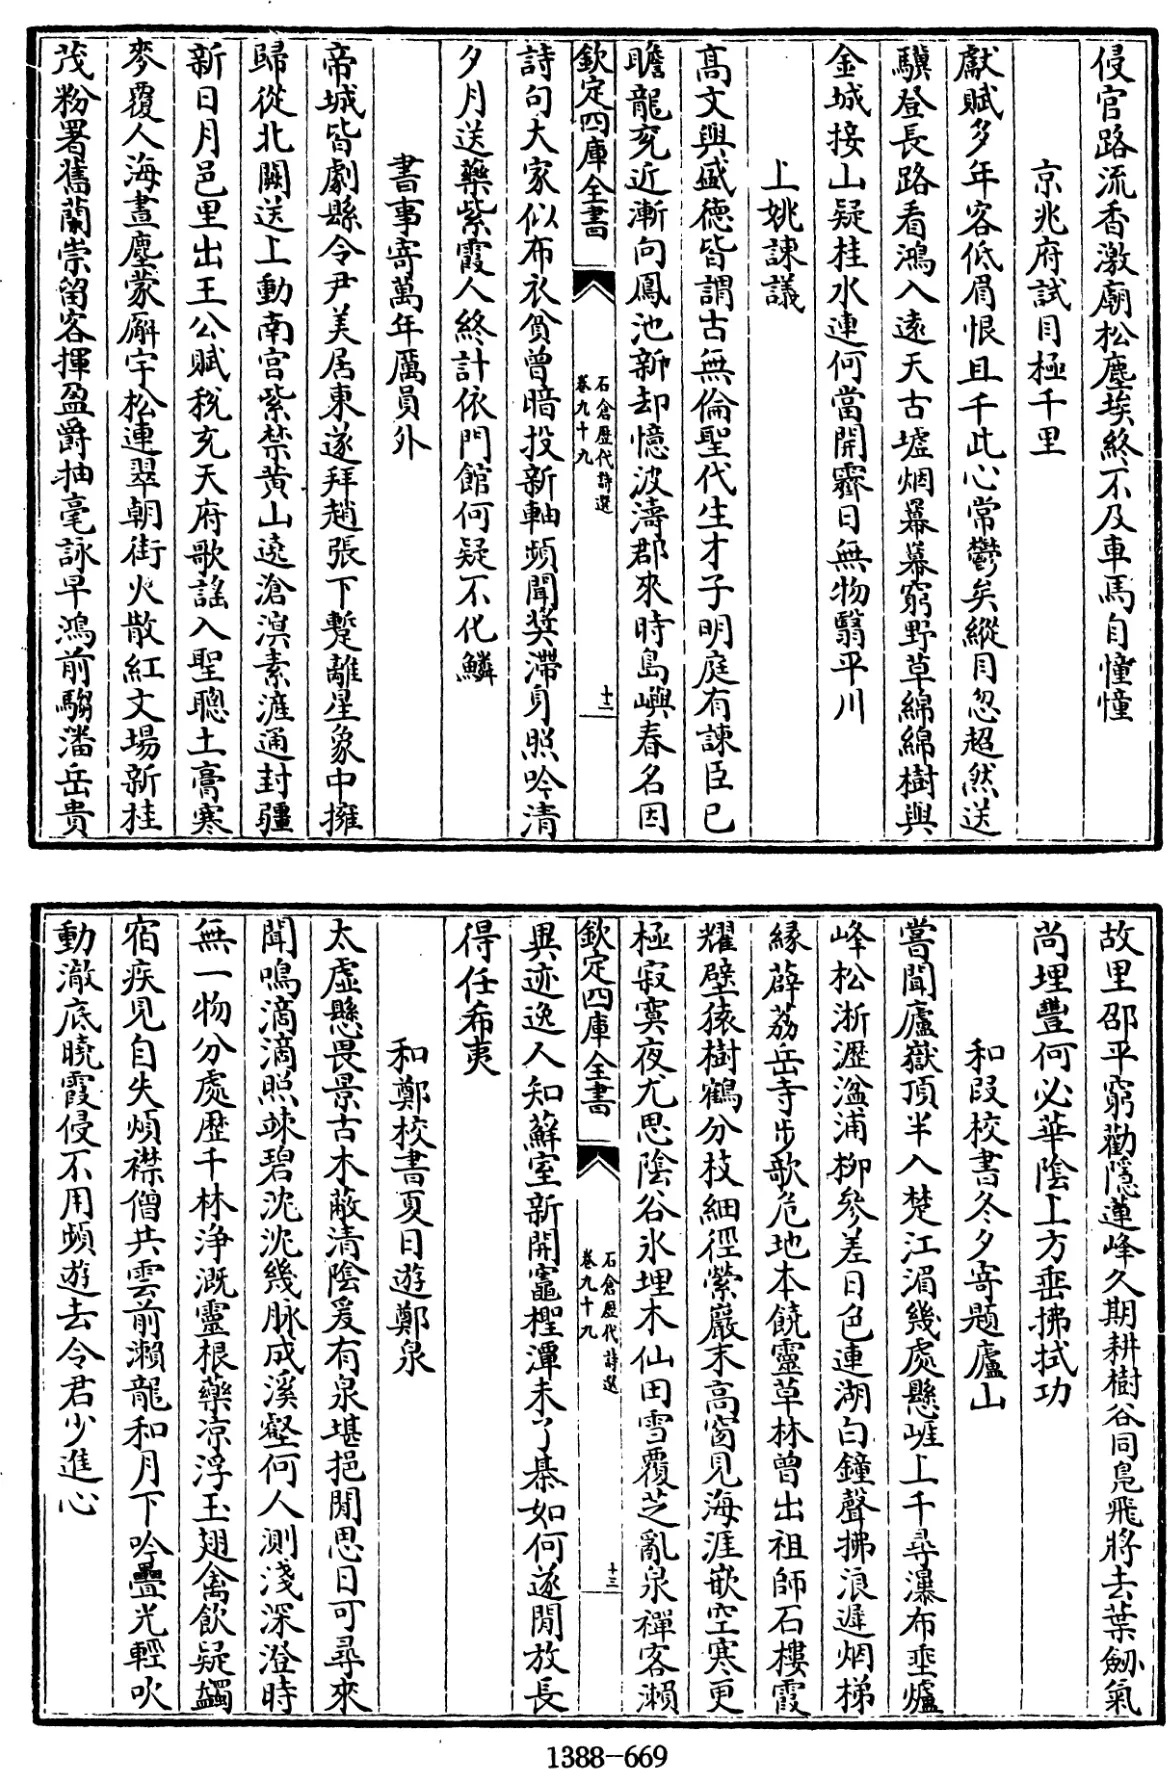 侵官路流香激廟松塵埃終不及車馬自憧憧
京兆府試目極千里
獻賦多年客低眉恨且千此心常鬱矣縱目忽超然送
驥登長路看鴻入遠天古墟烟羃羃窮野草綿綿樹與
金城接山疑桂水連何當開霽日無物翳平川
上姚諫議
高文與盛德皆謂古無倫聖代生才子明庭有諫臣已
瞻龍衮近漸向鳳池新却憶波濤郡來時島嶼春名因
欽定四庫全書
石倉歷代詩選
卷九十九
十二
詩句大家似布衣貧曾暗投新軸頻聞奬滯身照吟清
夕月送藥紫霞人終計依門館何疑不化鱗
書事寄萬年厲員外
帝城皆劇縣令尹美居東遂拜趙張下蹔離星象中擁
歸從北闕送上動南宫紫禁黄山遶滄溟素滻通封疆
新日月邑里出王公賦稅充天府歌謡入聖聰土膏寒
麥覆人海晝塵蒙廨宇松連翠朝街火散紅文場新桂
茂粉署舊蘭崇留客揮盈爵抽毫詠早鴻前騶潘岳貴
故里邵平窮勸隱蓮峰久期耕樹谷同鳧飛將去葉劒氣
尚埋豐何必華陰上方垂拂拭功
和段校書冬夕寄題廬山
嘗聞廬嶽頂半入楚江湄幾處懸崖上千尋瀑布垂爐
峰松淅瀝湓浦柳參差日色連湖白鐘聲拂浪遲烟梯
縁薜茘岳寺步歌危地本饒靈草林曾出祖師石樓霞
耀壁猿樹鶴分枝細徑縈巖末高窗見海涯嵌空寒更
極寂寞夜尤思陰谷氷埋木仙田雪覆芝亂泉禪客瀨
欽定四庫全書
石倉歷代詩選
卷九十九
十三
異迹逸人知蘚室新開竈檉潭未了棊如何遂閒放長
得任希夷
和鄭校書夏日遊鄭泉
太虚懸畏景古木蔽清陰爰有泉堪挹閒思日可尋來
聞鳴滴滴照竦碧沈沈幾脉成溪壑何人測淺深澄時
無一物分處歴千林浄溉靈根藥凉浮玉翅禽飲疑蠲
宿疾見自失煩襟僧共雲前瀨龍和月下吟疊光輕吹
動澈底曉霞侵不用頻遊去令君少進心
1388-669